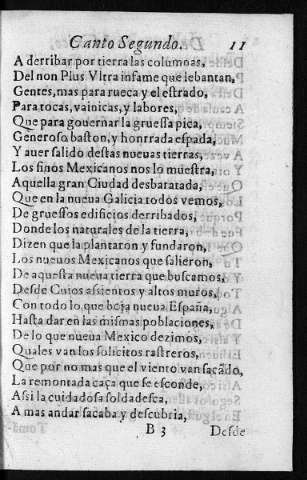 Canto Segundo. 11
A derribar por tierra las columnas,
Del non Plus Vltra infame que lebantan,
Gentes, mas para rueca y el estrado,
Para tocas, vainicas, y labores,
Que para gouernar la gruessa pica,
Generoso baston, y honrrada espada,
Y auer salido destas nueuas tierras,
Los finos Mexicanos nos lo muestra,
Aquella gran Ciudad desbaratada,
Que en la nueua Galicia todos vemos,
De gruessos edificios derribados,
Donde los naturales de la tierra,
Dizen que la plantaron y fundaron,
Los nueuos Mexicanos que salieron,
De aquesta nueua tierra que buscamos,
Desde Cuios assientos y altos muros,
Con todo lo que boja nueua España,
Hasta dar en las mismas poblaciones,
De lo que nueua Mexico dezimos,
Quales van los solicitos rastreros,
Que por no mas que el viento van sacãdo,
La remontada caça que se esconde,
Assi la cuidadosa soldadesca,
A mas andar sacaba y descubria,
B 3 Desde